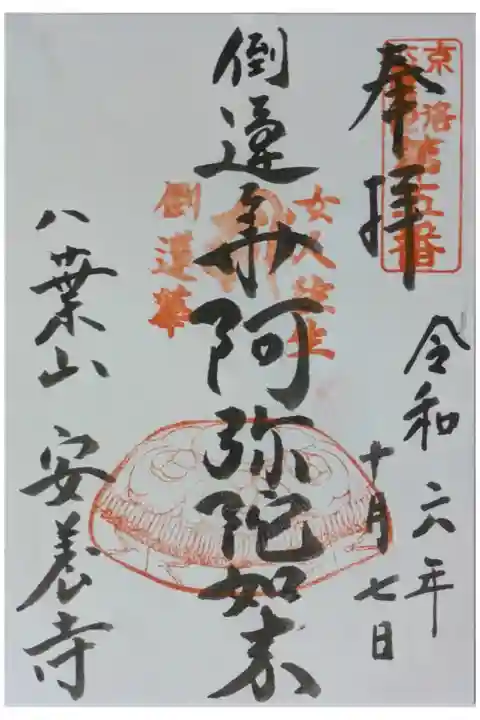 奉拝
令和六年
十月七日
倒蓮華阿弥陀如来
女人往生
倒蓮華
八葉山 安養寺